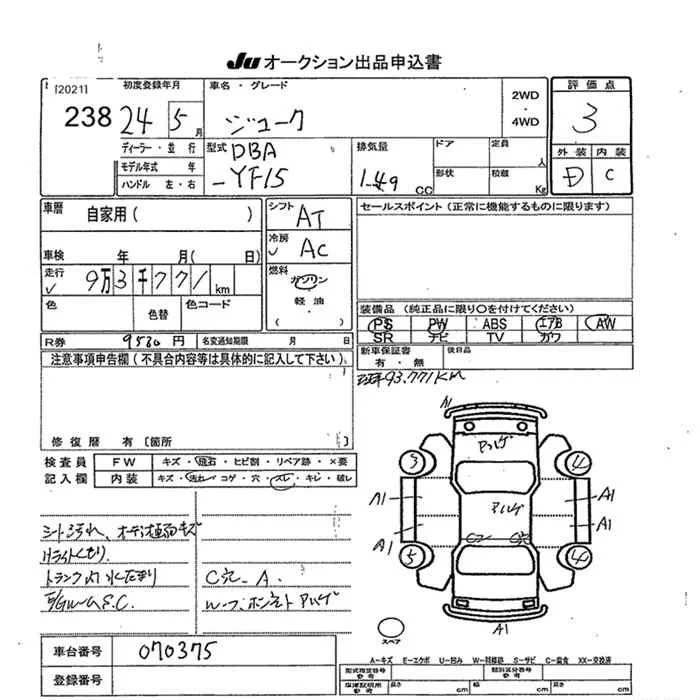 Ju オークション出品申込書
[2021]
238
初度登録年月
24 5 月
ディーラー・並行
モデル年式 年
ハンドル 左・右
車名・グレード
ジューク
2WD
・
4WD
評価点
3
外装 内装
D C
型式 DBA
-YF15
排気量
1.49 CC
ドア
定員 人
形状
積載 Kg
車歴
自家用( )
シフト AT
冷房 AC
車検 年 月( 日)
走行
9万3千771km
燃料
ガソリン
軽油
( )
色
色替
色コード
セールスポイント(正常に機能するものに限ります)
装備品(純正品に限り○を付けてください)
PS PW ABS エアB AW
SR ナビ TV カワ
R券 9530円
名変通知期限 月 日
新車保証書
有・無
後日品
93.771KM
注意事項申告欄(不具合内容等は具体的に記入して下さい)
修復歴 有 [箇所 ]
検査員
記入欄
FW キズ・飛石・ヒビ割・リペア跡・×要
内装 キズ・汚れ・コゲ・穴・スレ・キレ・破レ
シート汚れ、オーディオ植面キズ
Hライトくもり
トランク内水たまり
C穴、A、
ルーフ、ボンネットアハゲ
E/Gルーム S.C.
A1
アハゲ
3 4
A1 A1
アハゲ
A1 A1
5 4
A1
スペア
車台番号 070375
登録番号
A-キズ E-エクボ U-凹み W-補修跡 S-サビ C-腐食 XX-交換済
型式指定番号
参考
類別区分番号
参考
車庫証明用
参考
長さ cm
幅 cm
高さ cm